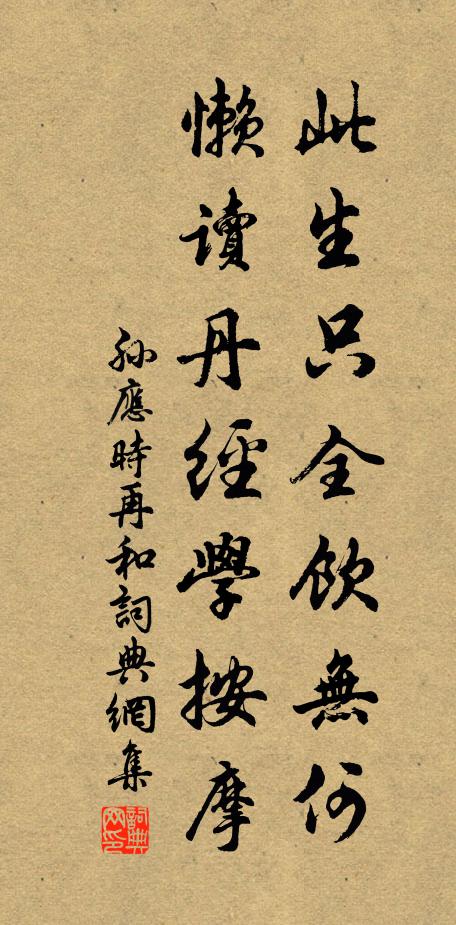 此生只全飲無何
懶讀丹經學按摩
孫應時再和詞典網集
詞典網印